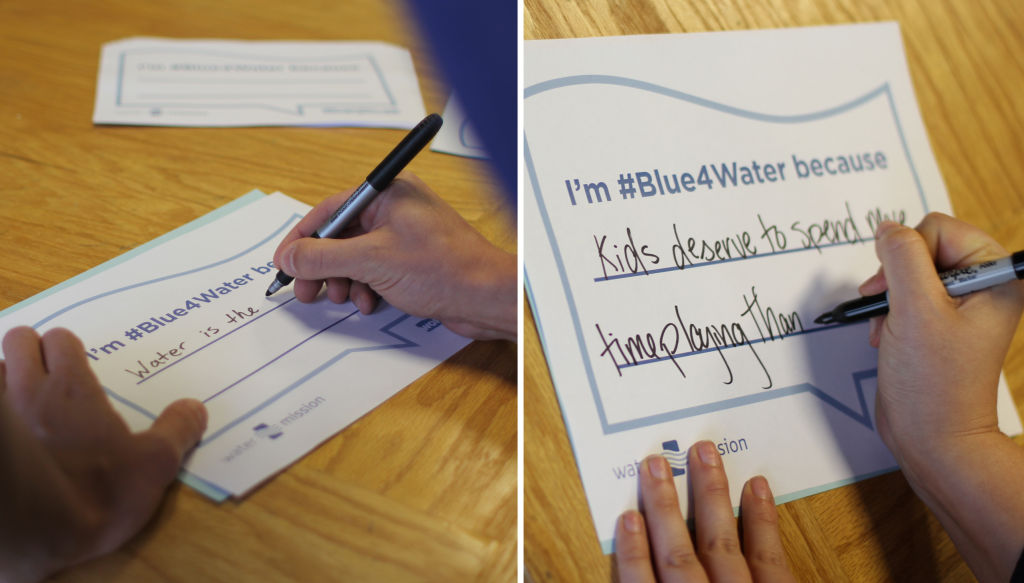 I'm #Blue4Water because
I'm #Blue4Water
Water is the
water mission
I'm #Blue4Water because
Kids deserve to spend more
time playing than
mission